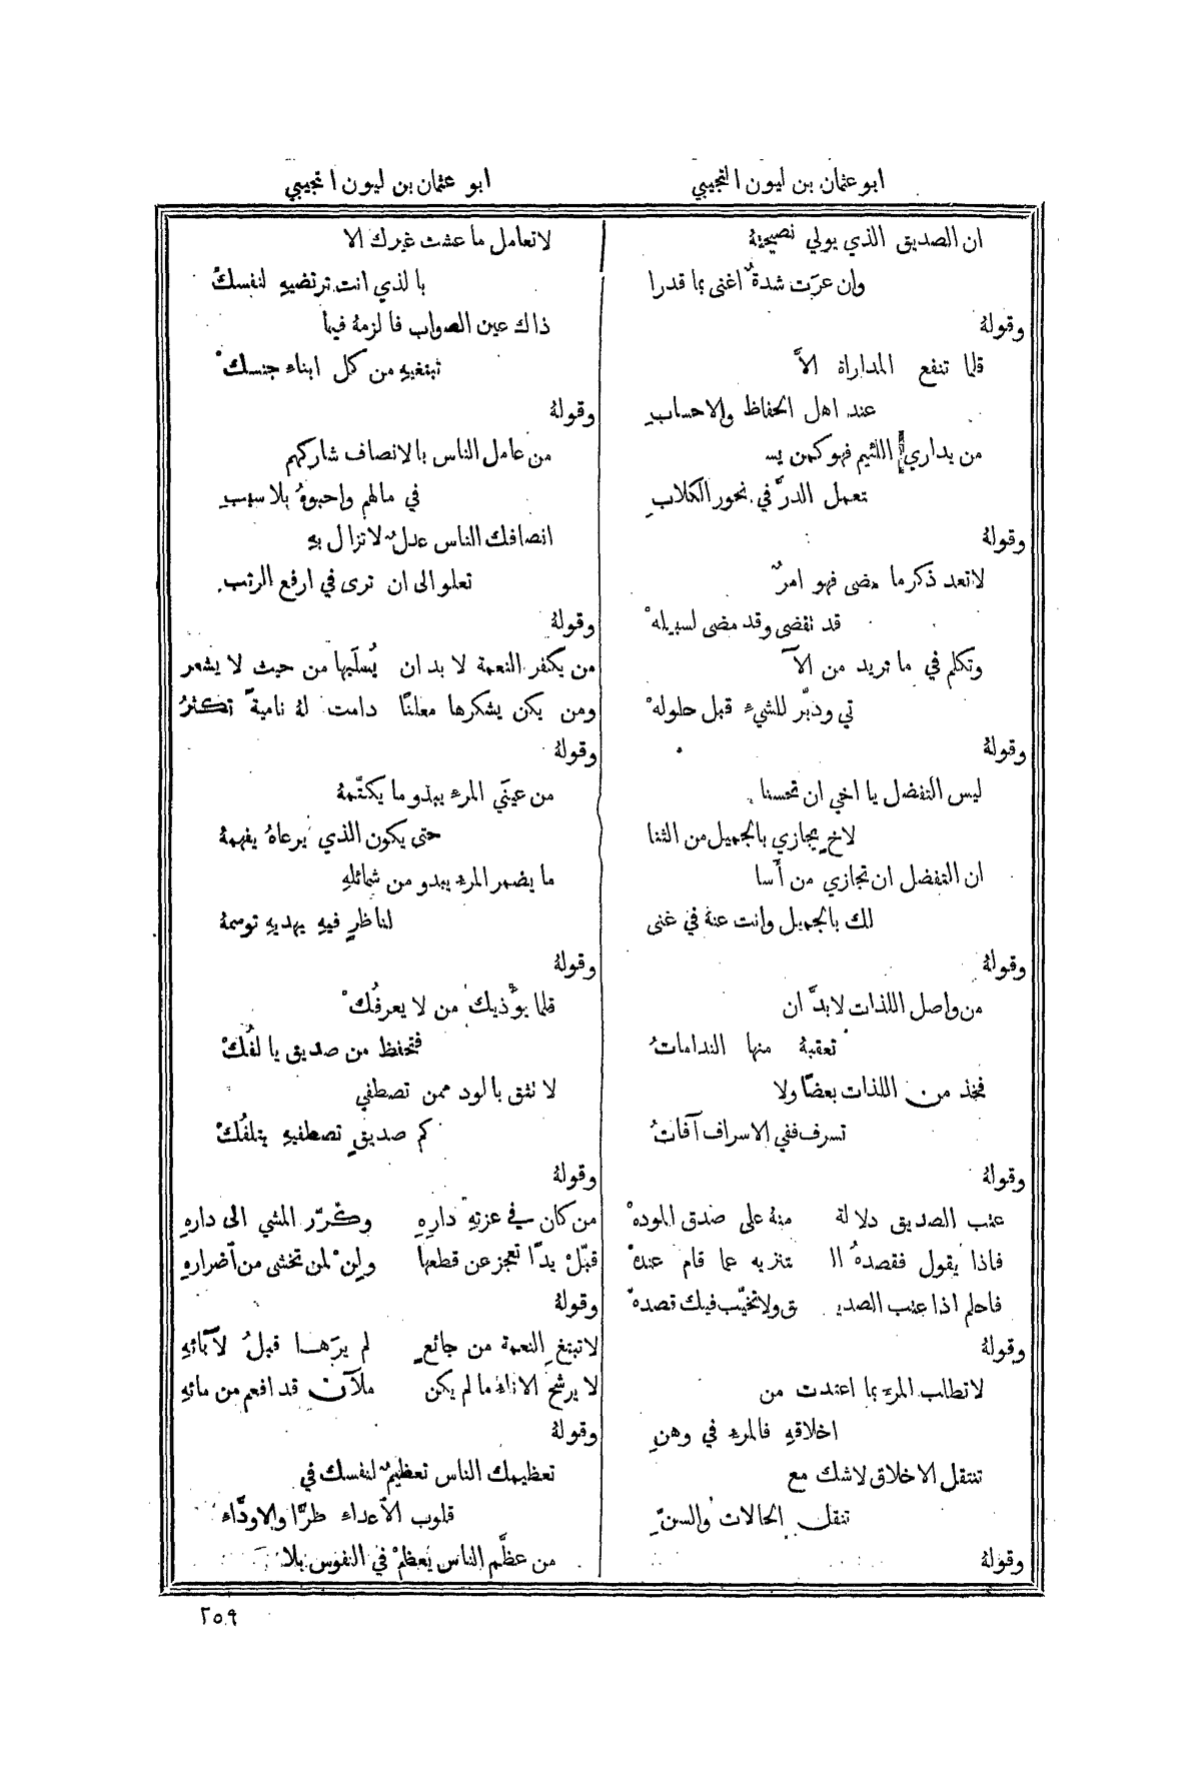 ابو عثمان بن ليون التجيبي
ان الصديق الذي يولي نصيحتهُ
وان عرَت شدةٌ اغنى بما قدرا
وقولهُ
قلما تنفع المداراة الاَّ
عند اهل الحفاظ والاحسابِ
من يداري اللئيم فهو كمن يس
تعمل الدرَّ في نحور الكلابِ
وقولهُ
لا تعد ذكر ما مضى فهو امرٌ
قد تقضى وقد مضى لسبيلهْ
وتكلم في ما تريد من الآ
تي ودبّر للشيءِ قبل حلولهْ
وقولهُ
ليس التفضل يا اخي ان تحسنا
لاخٍ يجازي بالجميل من الثنا
ان التفضل ان تجازي من أسا
لك بالجميل وانت عنهُ في غنى
وقولهُ
من واصل اللذات لا بدَّ ان
تعقبهُ منها الندامات
فخذ من اللذات بعضًا ولا
تسرف ففي الاسراف آفاتُ
وقولهُ
عتب الصديق دلالة منهُ على صدق المودهْ
فاذا يقول فقصدهُ ال تنزيه عما قام عندهْ
فاحلم اذا عتب الصدي ق ولا تخيّب فيك قصدهْ
وقولهُ
لا تطلب المرءَ بما اعتدت من
اخلاقهِ فالمرءُ في وهنِ
تنتقل الاخلاق لا شك مع
تنقل الحالات والسنِّ
وقولهُ
ابو عثمان بن ليون التجيبي
لا تعامل ما عشت غيرك الا
بالذي انت ترتضيهِ لنفسكْ
ذاك عين الصواب فالزمهُ فيما
تبتغيهِ من كل ابناءِ جنسكْ
وقولهُ
من عامل الناس بالانصاف شاركهم
في مالهم واحبوهُ بلا سببِ
انصافك الناس عدلٌ لا تزال بهِ
تعلو الى ان ترى في ارفع الرتب
وقولهُ
من يكفر النعمة لا بد ان يُسلَبها من حيث لا يشعر
ومن يكن يشكرها معلنًا دامت لهُ نامية تكثرُ
وقولهُ
من عيتَي المرءِ يبدو ما يكتّمهُ
حتى يكون الذي يرعاهُ يفهمهُ
ما يضمر المرءُ يبدو من شمائلهِ
لناظرٍ فيهِ يهديهِ توسمهُ
وقولهُ
قلما يؤذيك من لا يعرفُكْ
فتحفظ من صديق يالفُكْ
لا تثق بالود ممن تصطفي
كم صديقٍ تصطفيهِ يتلفُكْ
وقولهُ
من كان في عزتهِ دارِهِ وكرّر المشي الى دارهِ
قبّلْ يدًا تعجز عن قطعها ولِنْ لمن تخشى من أضرارهِ
وقولهُ
لا تبتغِ النعمة من جائعٍ لم يرَهـا قبلُ لآبائهِ
لا يرشح الاناءُ ما لم يكن ملآن قد افعم من مائهِ
وقولهُ
تعظيمك الناس تعظيمٌ لنفسك في
قلوب الأعداءِ طرًّا والاودَّاءِ
من عظَّم الناس يُعظَمْ في النفوس بلا
٢٥٩